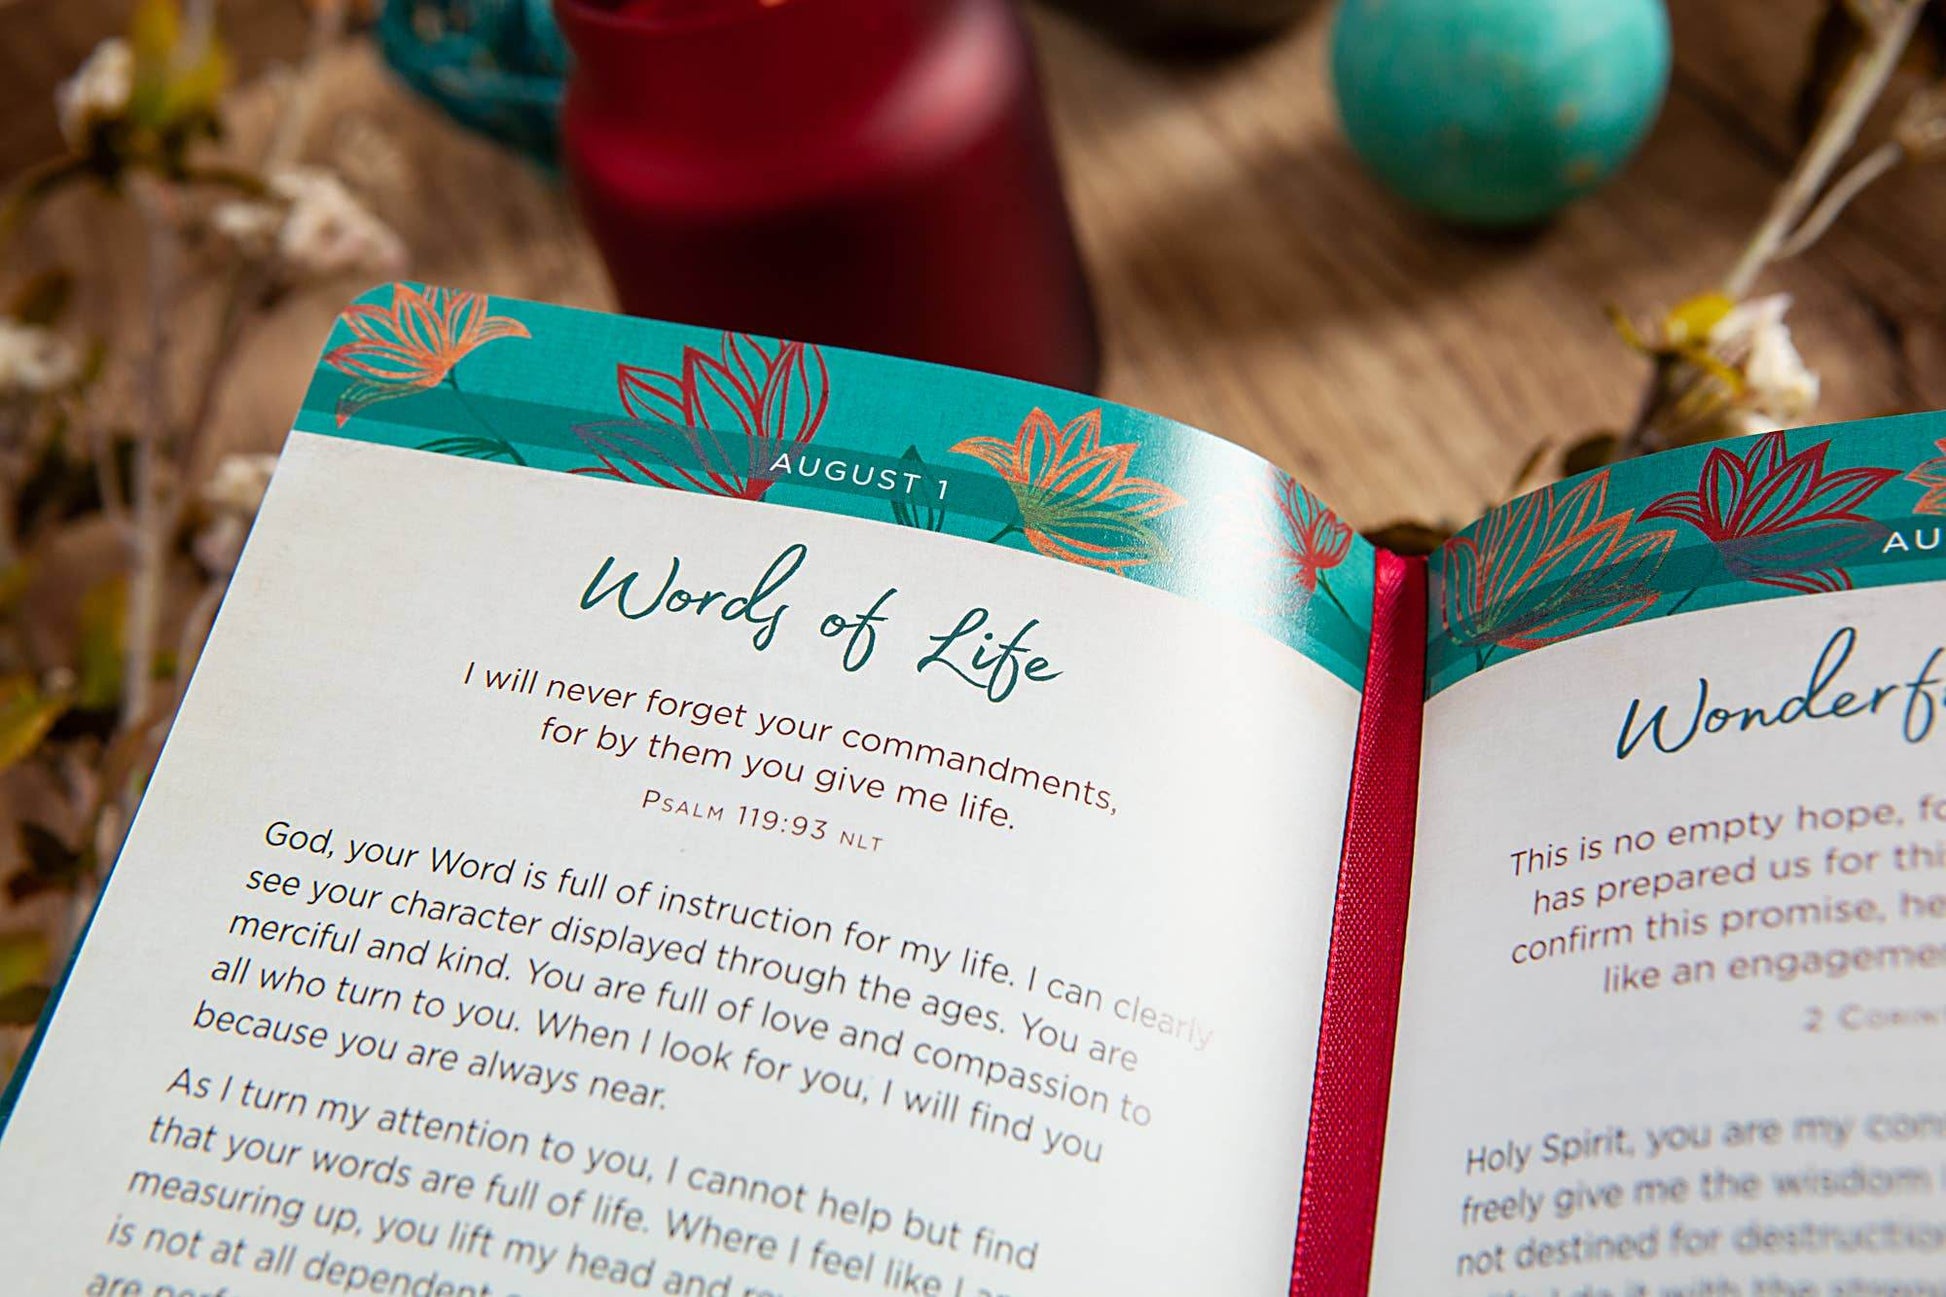 AUGUST 1
Words of Life
I will never forget your commandments,
for by them you give me life.
PSALM 119:93 NLT
God, your Word is full of instruction for my life. I can clearly
see your character displayed through the ages. You are
merciful and kind. You are full of love and compassion to
all who turn to you. When I look for you, I will find you
because you are always near.
As I turn my attention to you, I cannot help but find
that your words are full of life. Where I feel like I
measuring up, you lift my head and
is not at all dependent
are
AU
This is no empty hope,
has prepared us for
confirm this promise,
like an
2
Holy Spirit, you are my
freely give me the wisdom
not destined for
it with the